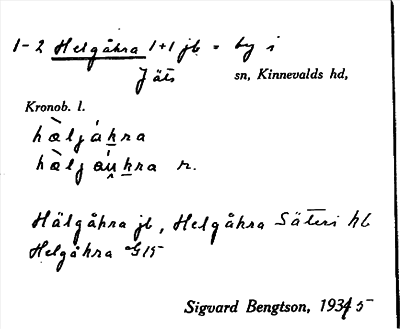 1-2 Helgåkra 1+1 jb = by i
Jäts sn, Kinnevalds hd,
Kronob. l.
hæ̀ljákra
hæ̀ljáu̯kra r.
Hälgåkra jb, Helgåkra Säteri hb
Helgåkra G15
Sigvard Bengtson, 1935